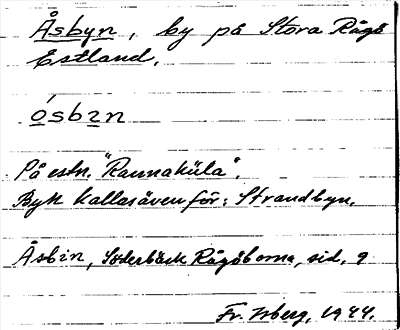 Åsbyn, by på Stora Rågö
Estland.
ósbın
På estn. "Rannaküla".
Byn kallas även för: Strandbyn.
Åsbin, Söderbäck Rågöborna, sid. 9
Fr. Isberg, 1944.